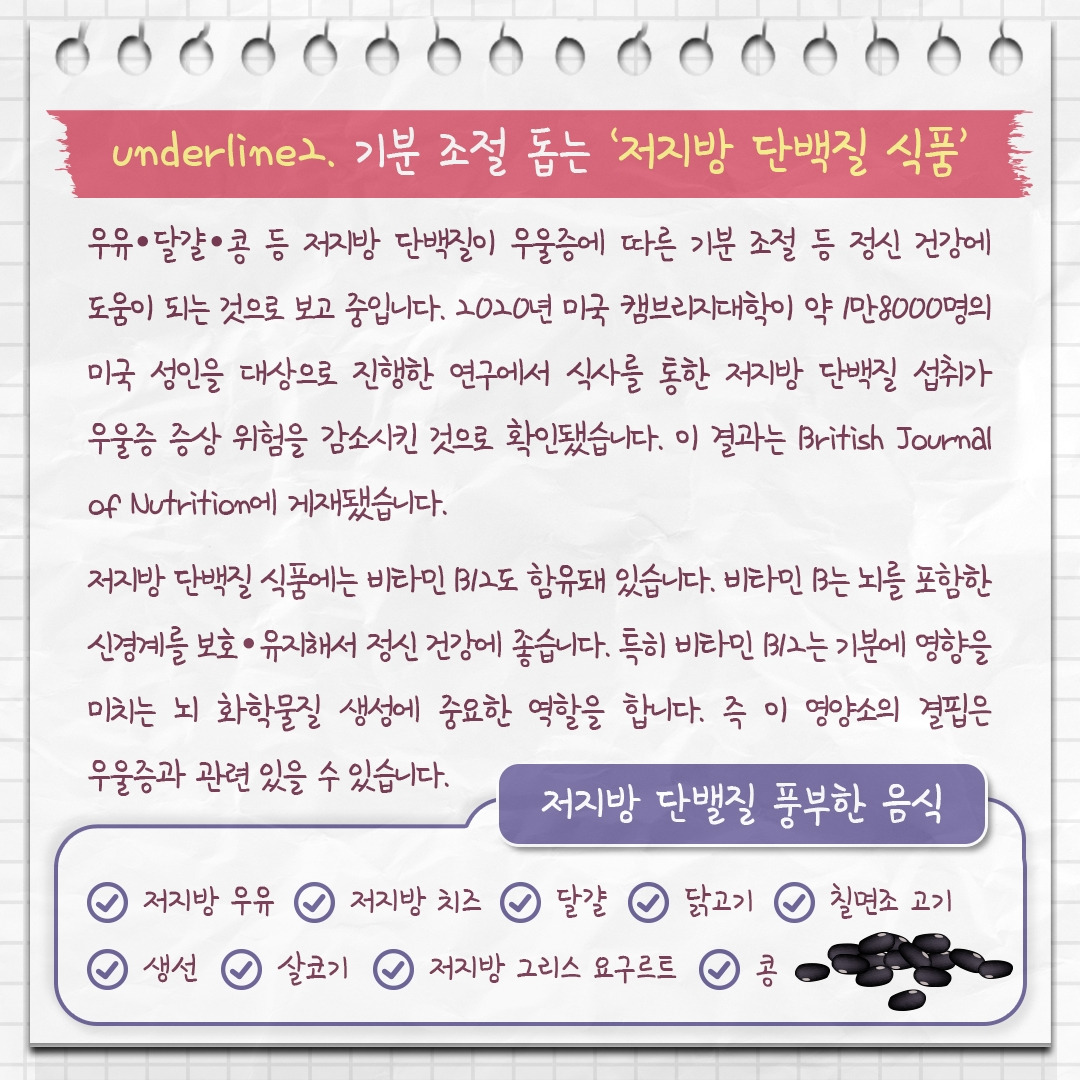 underline2. 기분 조절 돕는 ‘저지방 단백질 식품’
우유•달걀•콩 등 저지방 단백질이 우울증에 따른 기분 조절 등 정신 건강에
도움이 되는 것으로 보고 중입니다. 2020년 미국 캠브리지대학이 약 1만8000명의
미국 성인을 대상으로 진행한 연구에서 식사를 통한 저지방 단백질 섭취가
우울증 증상 위험을 감소시킨 것으로 확인됐습니다. 이 결과는 British Journal
of Nutrition에 게재됐습니다.
저지방 단백질 식품에는 비타민 B12도 함유돼 있습니다. 비타민 B는 뇌를 포함한
신경계를 보호•유지해서 정신 건강에 좋습니다. 특히 비타민 B12는 기분에 영향을
미치는 뇌 화학물질 생성에 중요한 역할을 합니다. 즉 이 영양소의 결핍은
우울증과 관련 있을 수 있습니다.
저지방 단밸질 풍부한 음식
저지방 우유 저지방 치즈 달걀 닭고기 칠면조 고기
생선 살코기 저지방 그리스 요구르트 콩